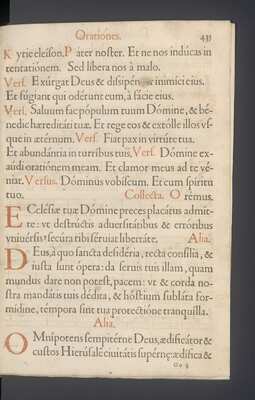 Orationes. 431
Kyrie eleison, Pater noster. Et ne nos indúcas in
tentationém. Sed libera nos à malo.
Vers. Exúrgat Deus & dissipén inimici eius.
Et fúgiant qui odérunt eum, à fácie eius.
Vers. Saluum fac pópulum tuum Dómine, & bé-
nedic hæreditati tuæ. Et rege eos & extólle illos vs-
que in ætérnum. Vers. Fiat pax in virtúte tua.
Et abundántia in turribus tuis. Vers. Dómine ex-
audi orationem meam. Et clamor meus ad te vé-
niat. Versus. Dóminus vobiscum. Et cum spiritu
tuo. Collecta. Orémus.
Ecclésiæ tuæ Dómine preces placátus admit-
te: vt destrúctis aduersitátibus & erróribus
vniuérsis secúra tibi séruiat libertáte. Alia.
Deus, à quo sancta desidéria, recta consilia, &
iusta sunt ópera: da seruis tuis illam, quam
mundus dare non potest, pacem: vt & corda no-
stra mandátis tuis dédita, & hóstium subláta for-
midine, témpora sint tua protectióne tranquilla.
Alia.
Omnipotens sempitérne Deus, ædificátor &
custos Hierúsalé ciuitátis supérnę: ædifica &